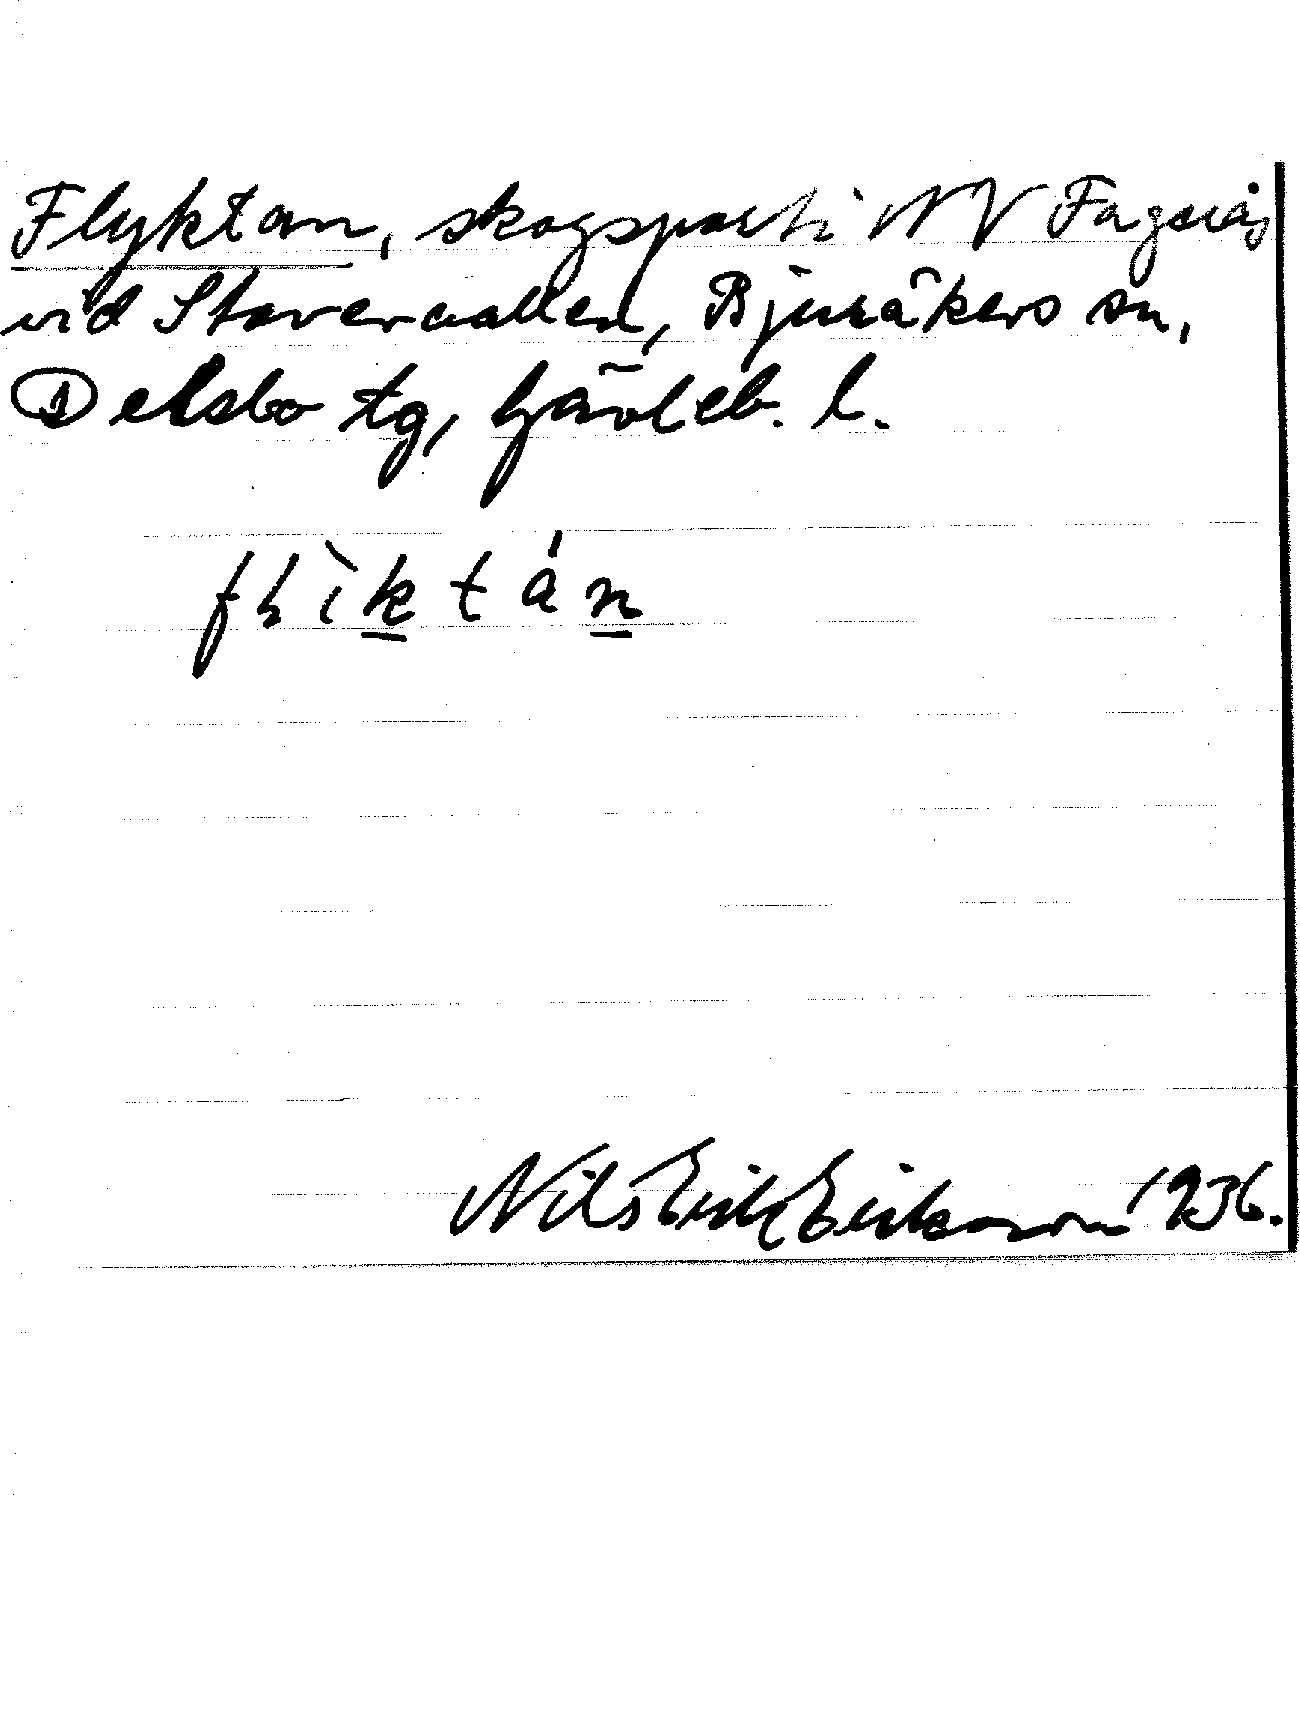 Flyktan, skogsparti NV Fagerås
vid Stavervallen, Bjuråkers sn,
Delsbo tg, Gävleb. l.
flìktán
Nils Erik Eriksson 1936.